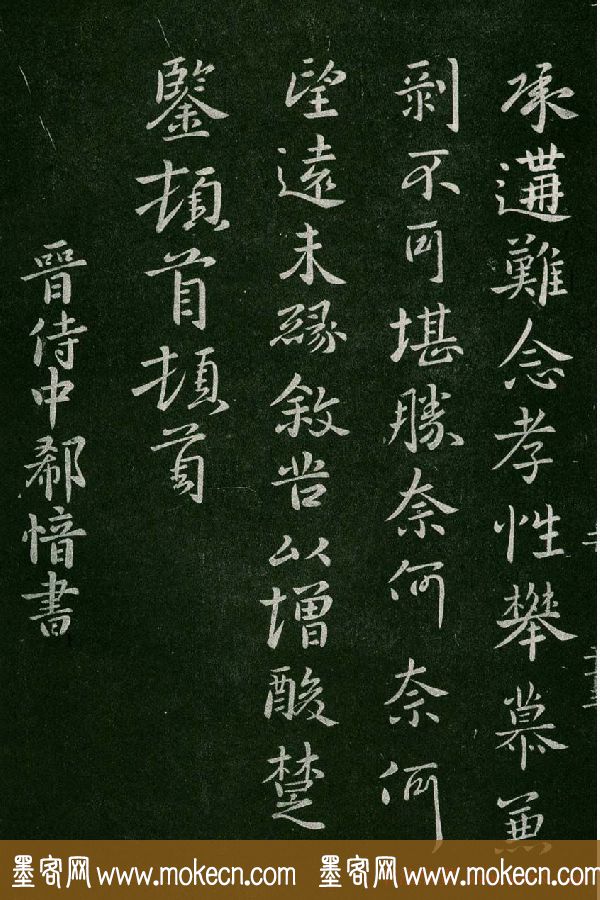 承遘難念孝性攀慕兼
剥不可堪勝奈何奈何
望遠未緣敘苦以增酸楚
鑒頓首頓首
晉侍中郗愔書
墨客网www.mokecn.com 墨客网www.mokecn.com